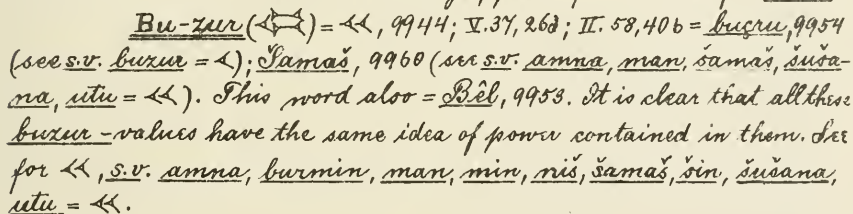 Bu-zur (𒌋𒌋) = 𒌋𒌋, 9944; V. 37, 26d; II. 58, 40b = buçru, 9954
(see s.v. buzur = 𒌋); Šamaš, 9960 (see s.v. amna, man, šamaš, šuša-
na, utu = 𒌋𒌋). This word also = Bêl, 9953. It is clear that all these
buzur-values have the same idea of power contained in them. See
for 𒌋𒌋, s.v. amna, burmin, man, min, niš, šamaš, šin, šušana,
utu = 𒌋𒌋.